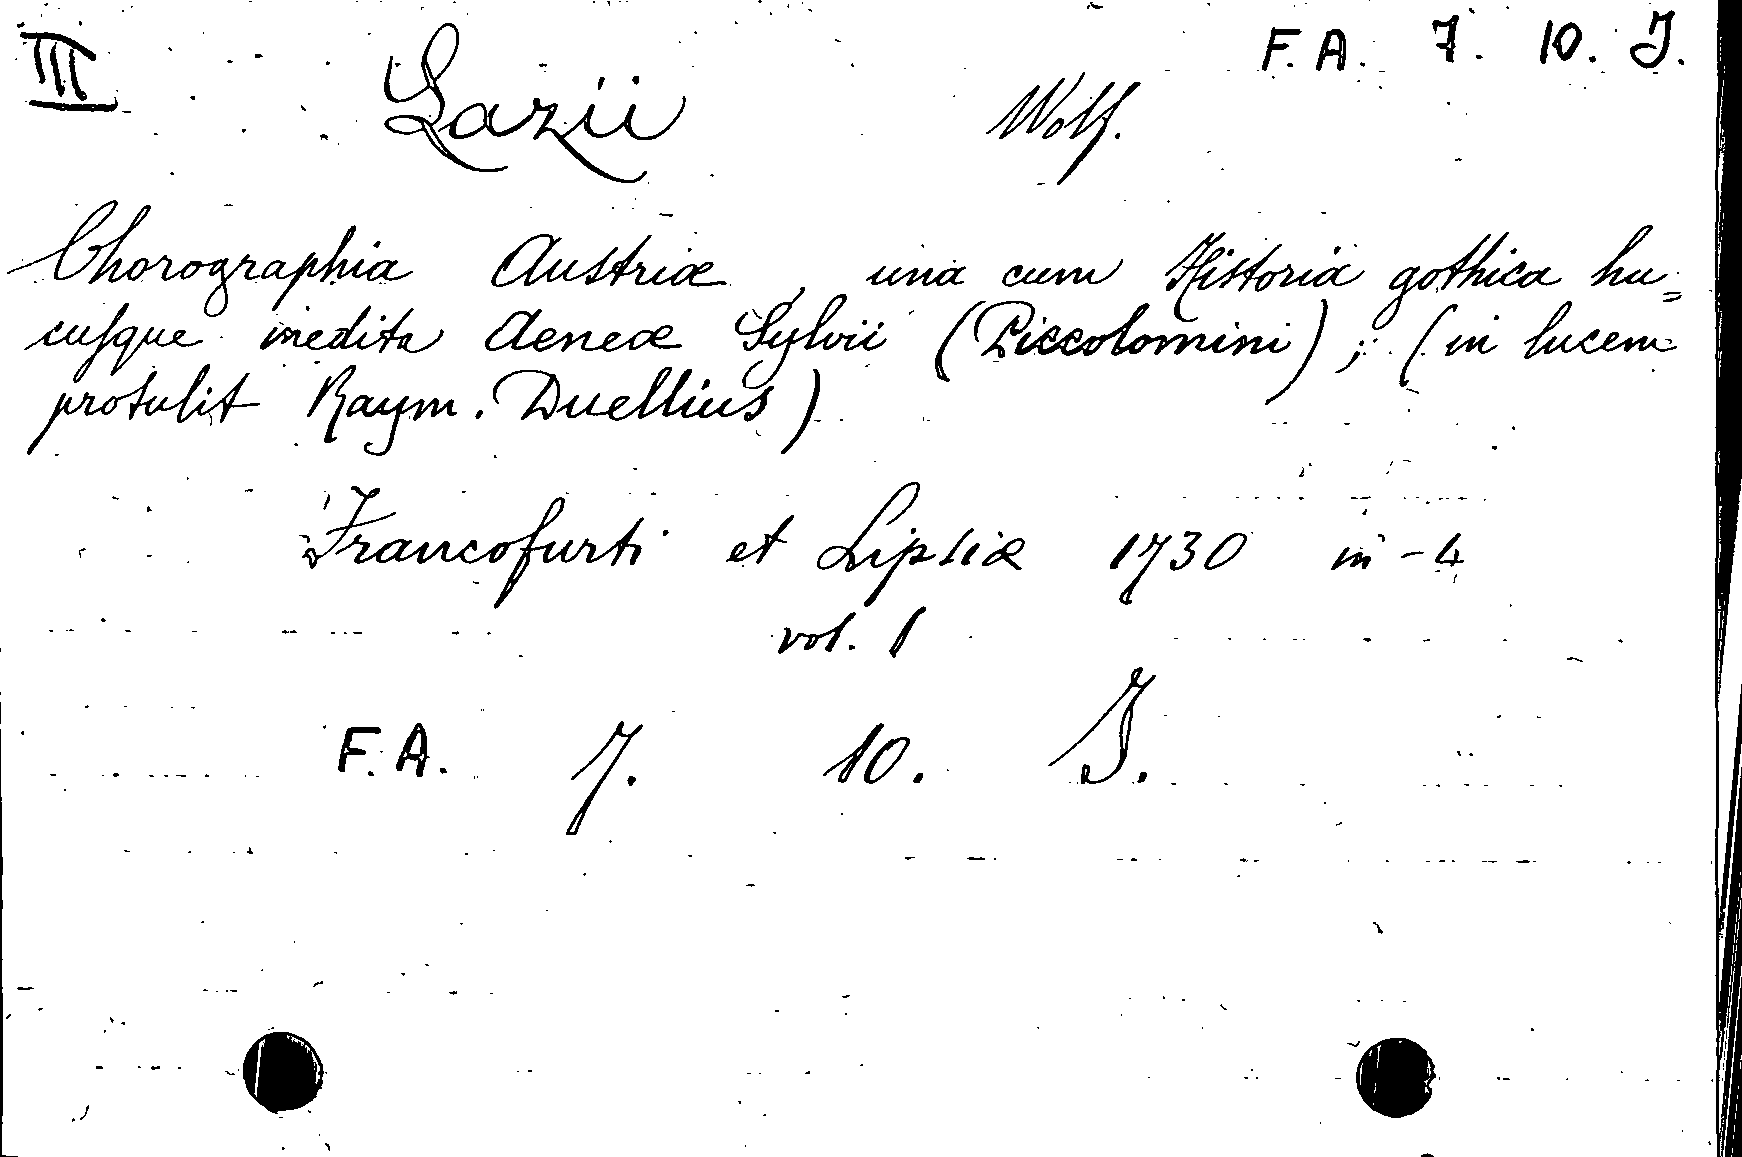 III F. A. 7. 10. J.
Lazii Wolf.
Chorographia Austriæ, una cum Historia gothica hu=
cusque inedita Aeneæ Sylvii (Piccolomini); (in lucem
protulit Raym. Duellius)
Francofurti et Lipsiæ 1730 in-4
vol. 1
F. A. 7. 10. J.